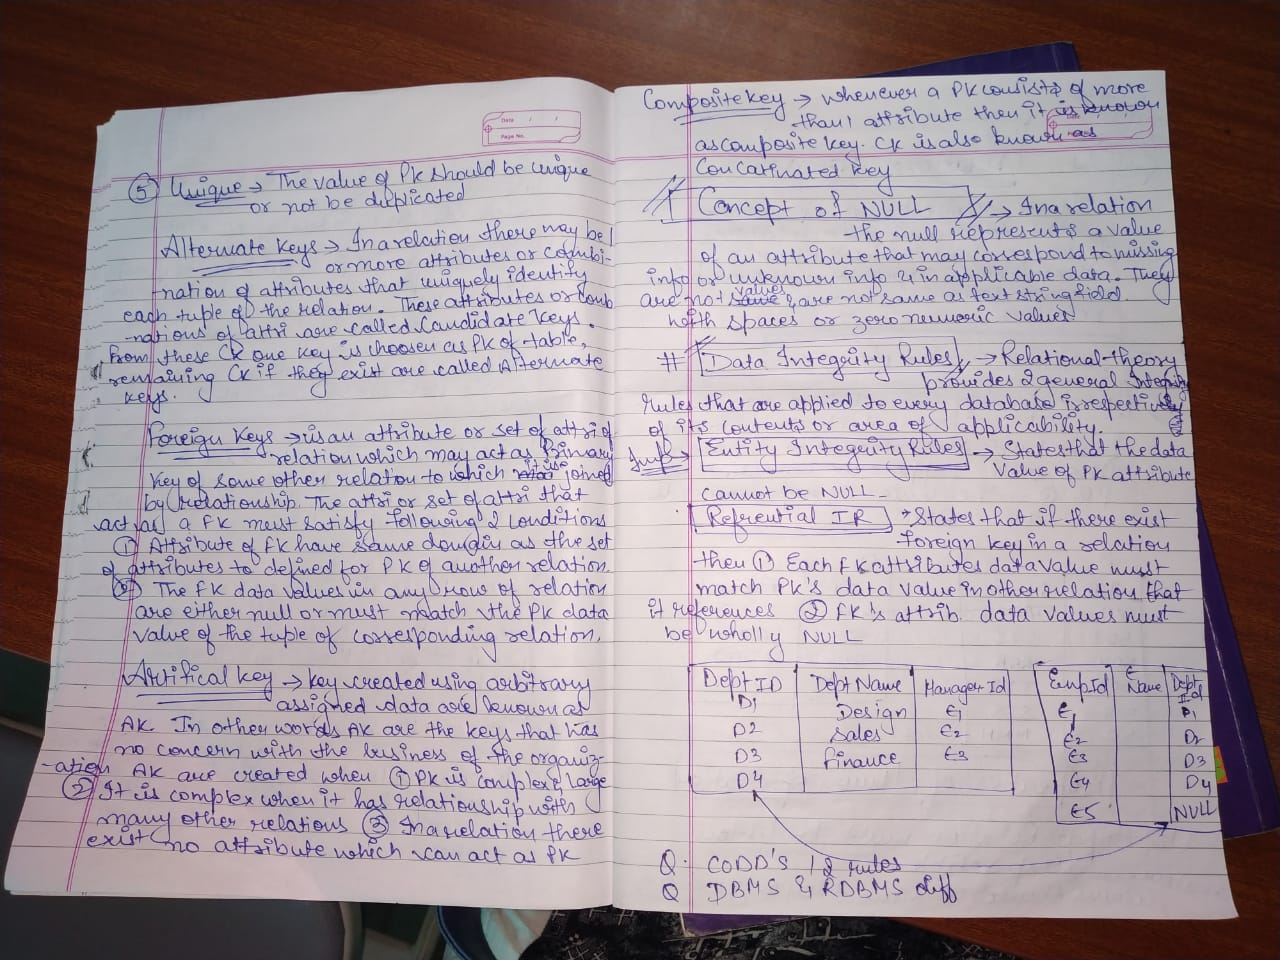 Date / /
Page No.
⑤ Unique → The value of PK should be unique
or not be duplicated
Alternate Keys → In a relation there may be 1
or more attributes or combi-
nation of attributes that uniquely identify
each tuple of the relation. These attributes or comb
-nations of attri are called Candidate Keys.
From these CK one key is choosen as PK of table,
remaining CK if they exist are called Alternate
Keys.
Foreign Keys → is an attribute or set of attri of
relation which may act as Primary
Key of some other relation to which it is joined
by relationship. The attri or set of attri that
act as a FK must satisfy following 2 conditions
① Attribute of FK have same domain as the set
of attributes to defined for PK of another relation.
② The FK data values in any row of relation
are either null or must match the PK data
value of the tuple of corresponding relation.
Artifical key → key created using arbitrary
assigned data are known as
AK. In other words AK are the keys that has
no concern with the business of the organiz-
-ation AK are created when ① PK is complex & large
② It is complex when it has relationship with
many other relations ③ In a relation there
exist no attribute which can act as PK
Composite key → whenever a PK consists of more
than 1 attribute then it is known
as composite key. CK is also known as
Concatinated key
Concept of NULL → In a relation
the null represents a value
of an attribute that may correspond to missing
info or unknown info & in applicable data. They
are not values & are not same as text string field
with spaces or zero numeric values
# Data Integrity Rules → Relational theory
provides 2 general Integrity
rules that are applied to every database irrespectively
of its contents or area of applicability.
Imp → Entity Integrity Rules → States that the data
value of PK attribute
cannot be NULL -
Refrential IR → States that if there exist
foreign key in a relation
then ① Each FK attributes data value must
match PK's data value in other relation that
it references ② FK's attrib. data values must
be wholly NULL
Dept ID Dept Name Manager Id
D1 Design E1
D2 Sales E2
D3 Finance E3
D4
Emp Id E Name Dept Id
E1 D1
E2 D2
E3 D3
E4 D4
E5 NULL
Q. CODD'S 12 rules
Q DBMS & RDBMS diff